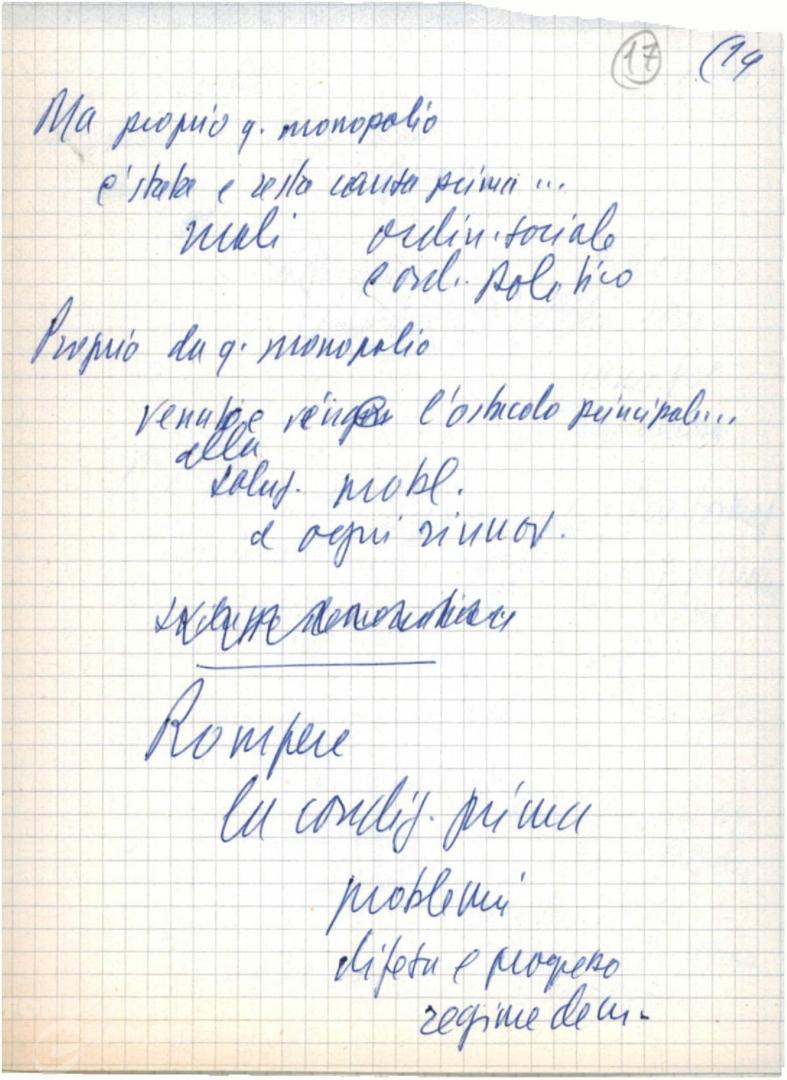 17 (14
Ma proprio q. monopolio
è stata e resta causa prima...
mali ordin. sociale
e ord. politico
Proprio da q. monopolio
venuto e l'ostacolo principale...
alla
soluz. probl.
e ogni rinnov.
sviluppo democratico
Rompere
la condiz. prima
problemi
difesa e progresso
regime dem.